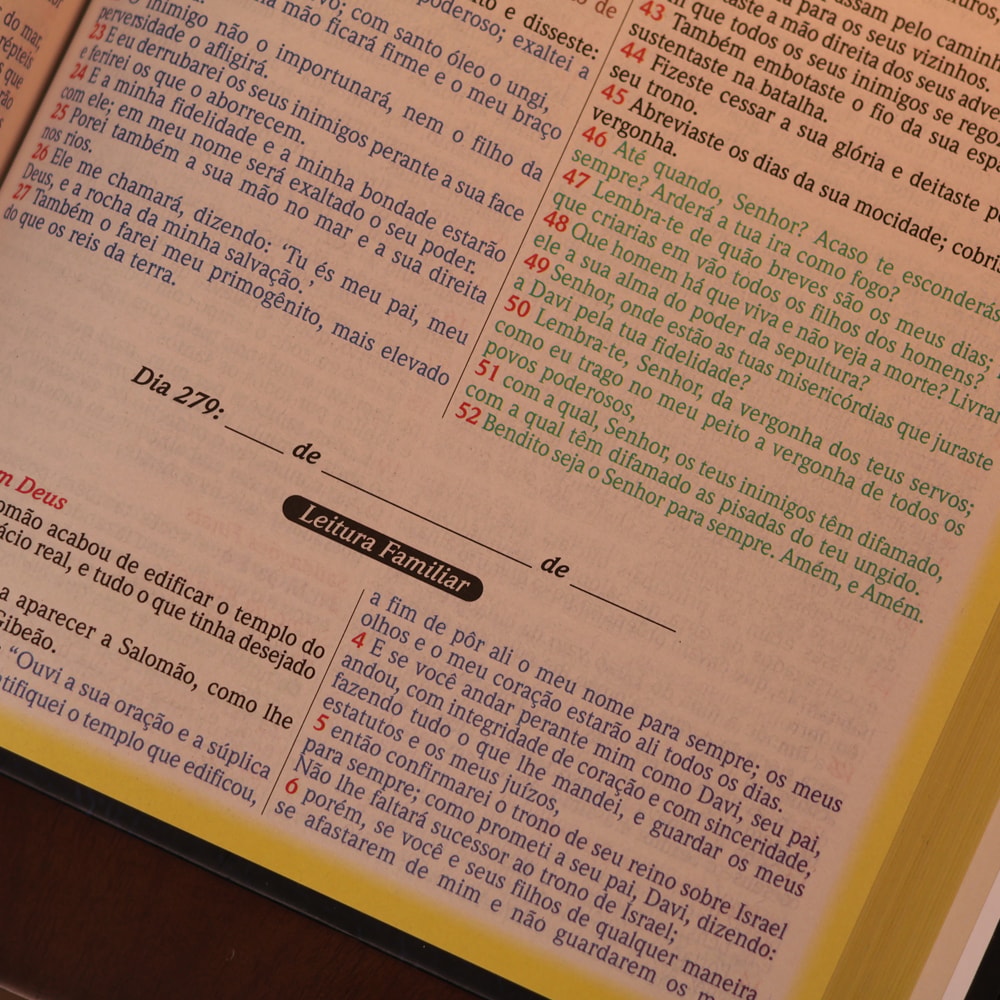 do mar,
répteis
que
vo; com santo óleo o ungi,
a mão ficará firme e o meu braço
inimigo não o importunará, nem o filho da
perversidade o afligirá.
23 E eu derrubarei os seus inimigos perante a sua face
e ferirei os que o aborrecem.
24 E a minha fidelidade e a minha bondade estarão
com ele; em meu nome será exaltado o seu poder.
25 Porei também a sua mão no mar e a sua direita
nos rios.
26 Ele me chamará, dizendo: ‘Tu és meu pai, meu
Deus, e a rocha da minha salvação.’
27 Também o farei meu primogênito, mais elevado
do que os reis da terra.
e disseste:
poderoso; exaltei a
passam pelo caminh
para os seus vizinhos.
aste a mão direita dos seus adve
m que todos os seus inimigos se rego
43 Também embotaste o fio da sua esp
sustentaste na batalha.
44 Fizeste cessar a sua glória e deitaste p
seu trono.
45 Abreviaste os dias da sua mocidade; cobri
vergonha.
46 Até quando, Senhor? Acaso te esconderás
sempre? Arderá a tua ira como fogo?
47 Lembra-te de quão breves são os meus dias;
que criarias em vão todos os filhos dos homens?
48 Que homem há que viva e não veja a morte? Livra
ele a sua alma do poder da sepultura?
49 Senhor, onde estão as tuas misericórdias que juraste
a Davi pela tua fidelidade?
50 Lembra-te, Senhor, da vergonha dos teus servos;
como eu trago no meu peito a vergonha de todos os
povos poderosos,
51 com a qual, Senhor, os teus inimigos têm difamado,
com a qual têm difamado as pisadas do teu ungido.
52 Bendito seja o Senhor para sempre. Amém, e Amém.
Dia 279: ____ de ____________ de ______
Leitura Familiar
m Deus
omão acabou de edificar o templo do
ácio real, e tudo o que tinha desejado
a aparecer a Salomão, como lhe
Gibeão.
“Ouvi a sua oração e a súplica
ntifiquei o templo que edificou,
a fim de pôr ali o meu nome para sempre; os meus
olhos e o meu coração estarão ali todos os dias.
4 E se você andar perante mim como Davi, seu pai,
andou, com integridade de coração e com sinceridade,
fazendo tudo o que lhe mandei, e guardar os meus
estatutos e os meus juízos,
5 então confirmarei o trono de seu reino sobre Israel
para sempre; como prometi a seu pai, Davi, dizendo:
Não lhe faltará sucessor ao trono de Israel;
6 porém, se você e seus filhos de qualquer maneira
se afastarem de mim e não guardarem os m